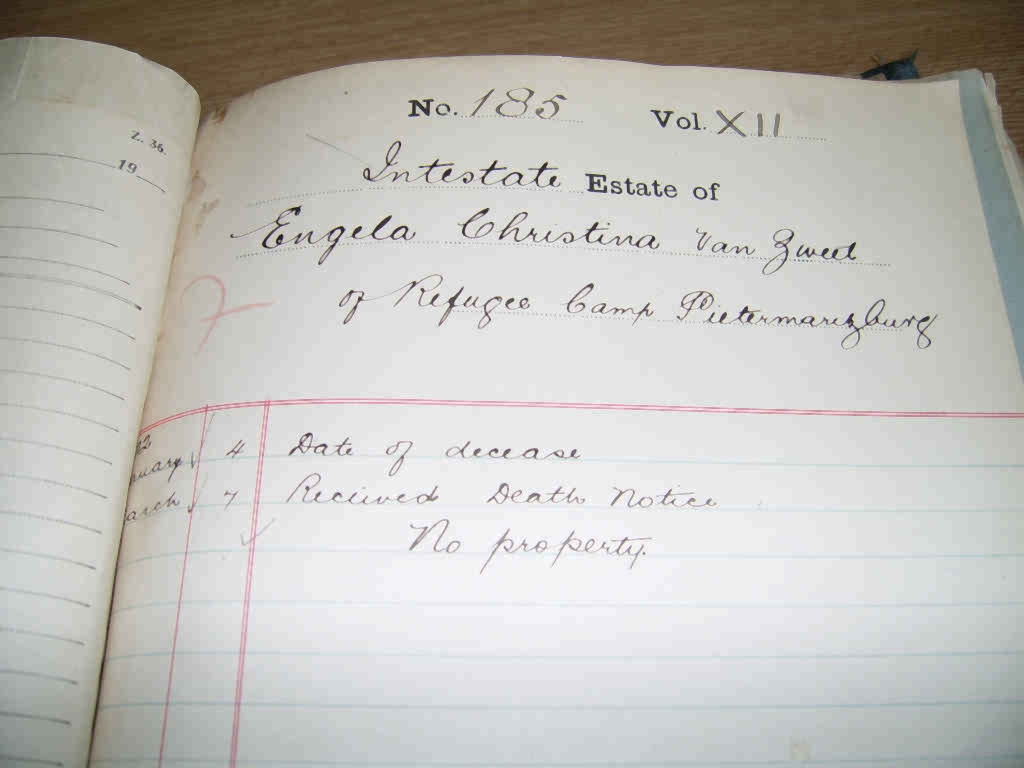 Z. 36.
19
No. 185 Vol. XII
Intestate Estate of
Engela Christina Van Zweel
of Refugee Camp Pietermaritzburg
7
4 Date of decease
7 Received Death Notice
No property.